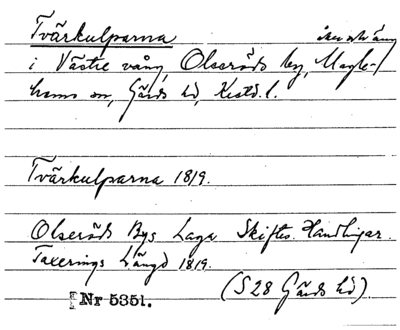 Tvärkulparna åker och äng
i Västre vång, Olseröds by, Magle-
hems sn, Gärds hd, Kristd. l.
Tvärkulparna 1819.
Olseröds Bys Laga Skiftes Handlingar.
Taxerings Längd 1819.
(S 28 Gärds hd)
Nr 5351.